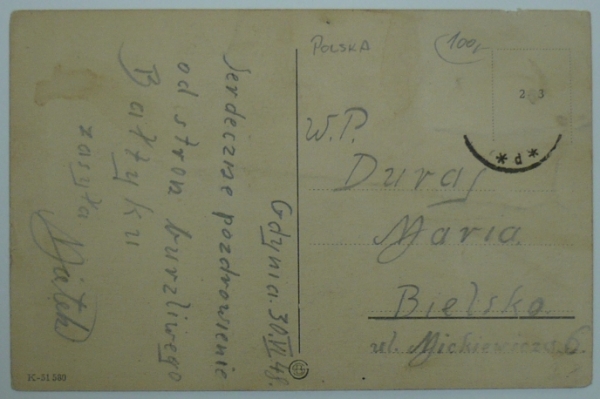 Gdynia. 30.VI.48.
Serdeczne pozdrowienie
od stron burzliwego
Bałtyku
zasyła
POLSKA
100,-
2 3
*P*
W.P.
Duraj
Maria.
Bielsko.
ul. Mickiewicza 6.
K-51580